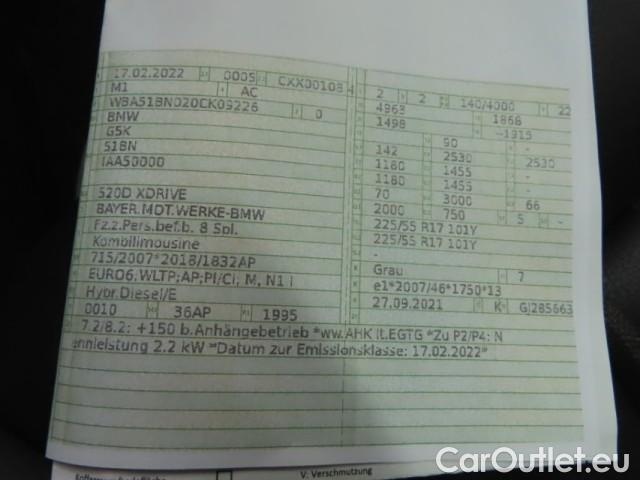 17.02.2022 0005 CXX00108 4
M1 AC
WBA51BN020CK09226 0
BMW
G5K
51BN
IAA50000
520D XDRIVE
BAYER.MOT.WERKE-BMW
Fz.z.Pers.bef.b. 8 Spl.
Kombilimousine
715/2007*2018/1832AP
EURO6;WLTP;AP;PI/CI, M, N1 I
Hybr.Diesel/E
0010 36AP 1995
2 2 140/4000 22
4963 1868
1498 -1915
90 -
142 2530 2530
1180 1455 -
1180 1455 -
70 3000 66
2000 750 5 -
225/55 R17 101Y
225/55 R17 101Y
-
-
Grau 7
e1*2007/46*1750*13
27.09.2021 K GJ285663
7.2/8.2: +150 b.Anhängebetrieb *ww.AHK lt.EGTG *Zu P2/P4: N
ennleistung 2.2 kW *Datum zur Emissionsklasse: 17.02.2022*
V: Verschmutzung
CarOutlet.eu